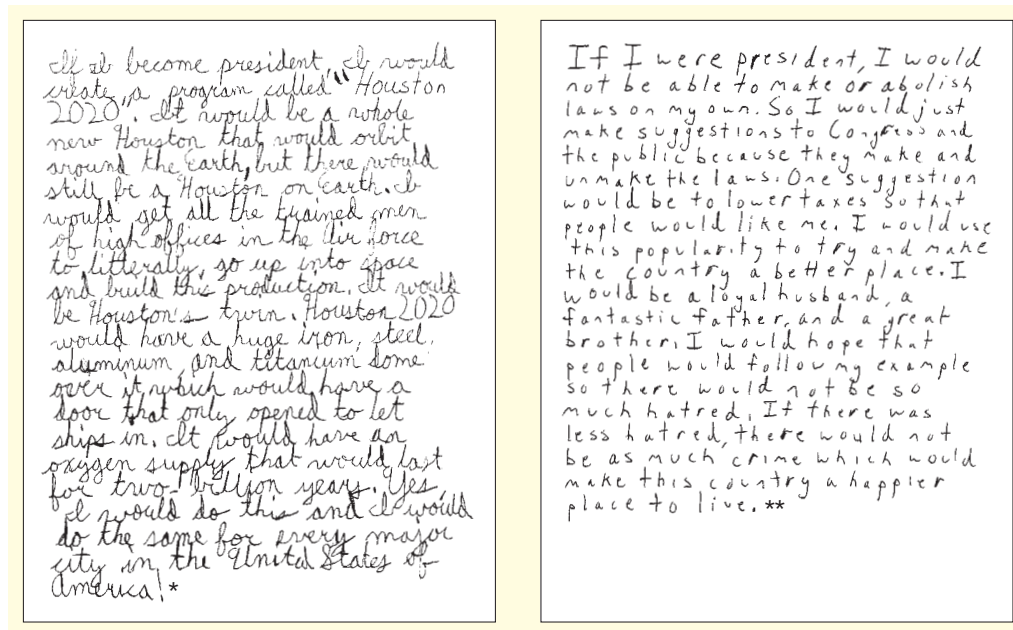 If I become president, I would
create a program called "Houston
2020". It would be a whole
new Houston that would orbit
around the Earth, but there would
still be a Houston on Earth. I
would get all the trained men
of high offices in the Air force
to litterally, go up into space
and build this production. It would
be Houston's twin. Houston 2020
would have a huge iron, steel,
aluminum, and titanium dome
over it which would have a
door that only opened to let
ships in. It would have an
oxygen supply that would last
for two-billion years. Yes,
I would do this and I would
do the same for every major
city in the United States of
America!*
If I were president, I would
not be able to make or abolish
laws on my own. So, I would just
make suggestions to Congress and
the public because they make and
unmake the laws. One suggestion
would be to lower taxes so that
people would like me. I would use
this popularity to try and make
the country a better place. I
would be a loyal husband, a
fantastic father, and a great
brother. I would hope that
people would follow my example
so there would not be so
much hatred. If there was
less hatred, there would not
be as much crime which would
make this country a happier
place to live.**